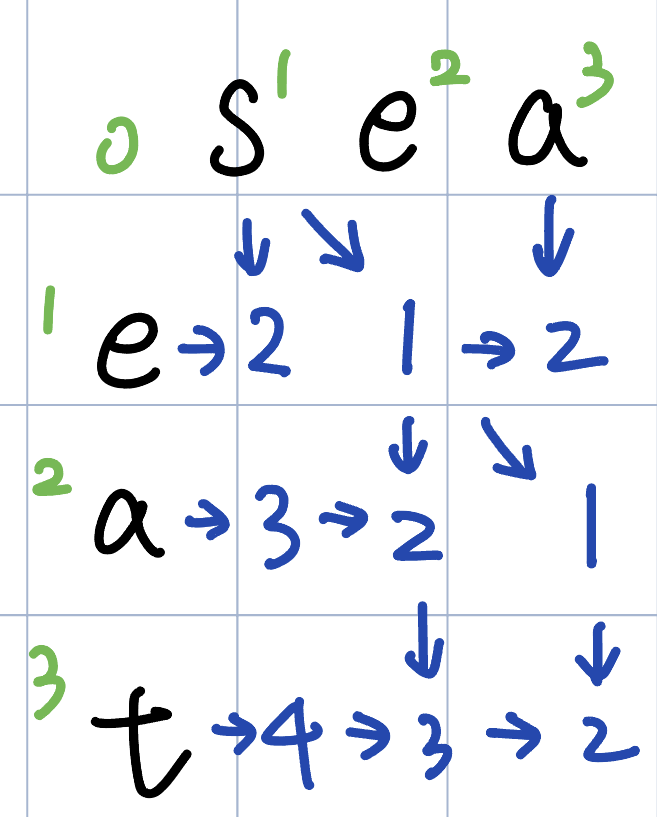 0 s 1 e 2 a 3
↓ ↘ ↓
1 e → 2 1 → 2
↓ ↘
2 a → 3 → 2 1
↓ ↓
3 t → 4 → 3 → 2